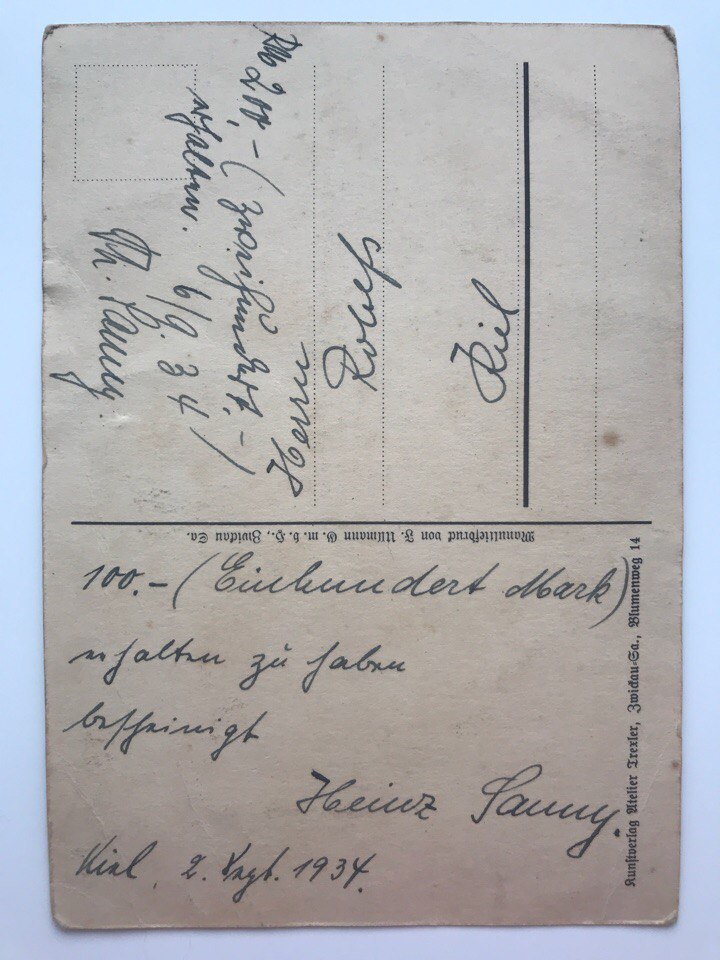 RM 200,- (zweihundert.-)
erhalten.
6/9. 34
Th. Sanny.
Herrn
Kiel
Manultiefdruck von F. Ullmann G. m. b. H., Zwickau Sa.
100.- (Einhundert Mark)
erhalten zu haben
bescheinigt
Heinz Sanny.
Kiel, 2. Sept. 1934.
Kunstverlag Atelier Trexler, Zwickau-Sa., Blumenweg 14